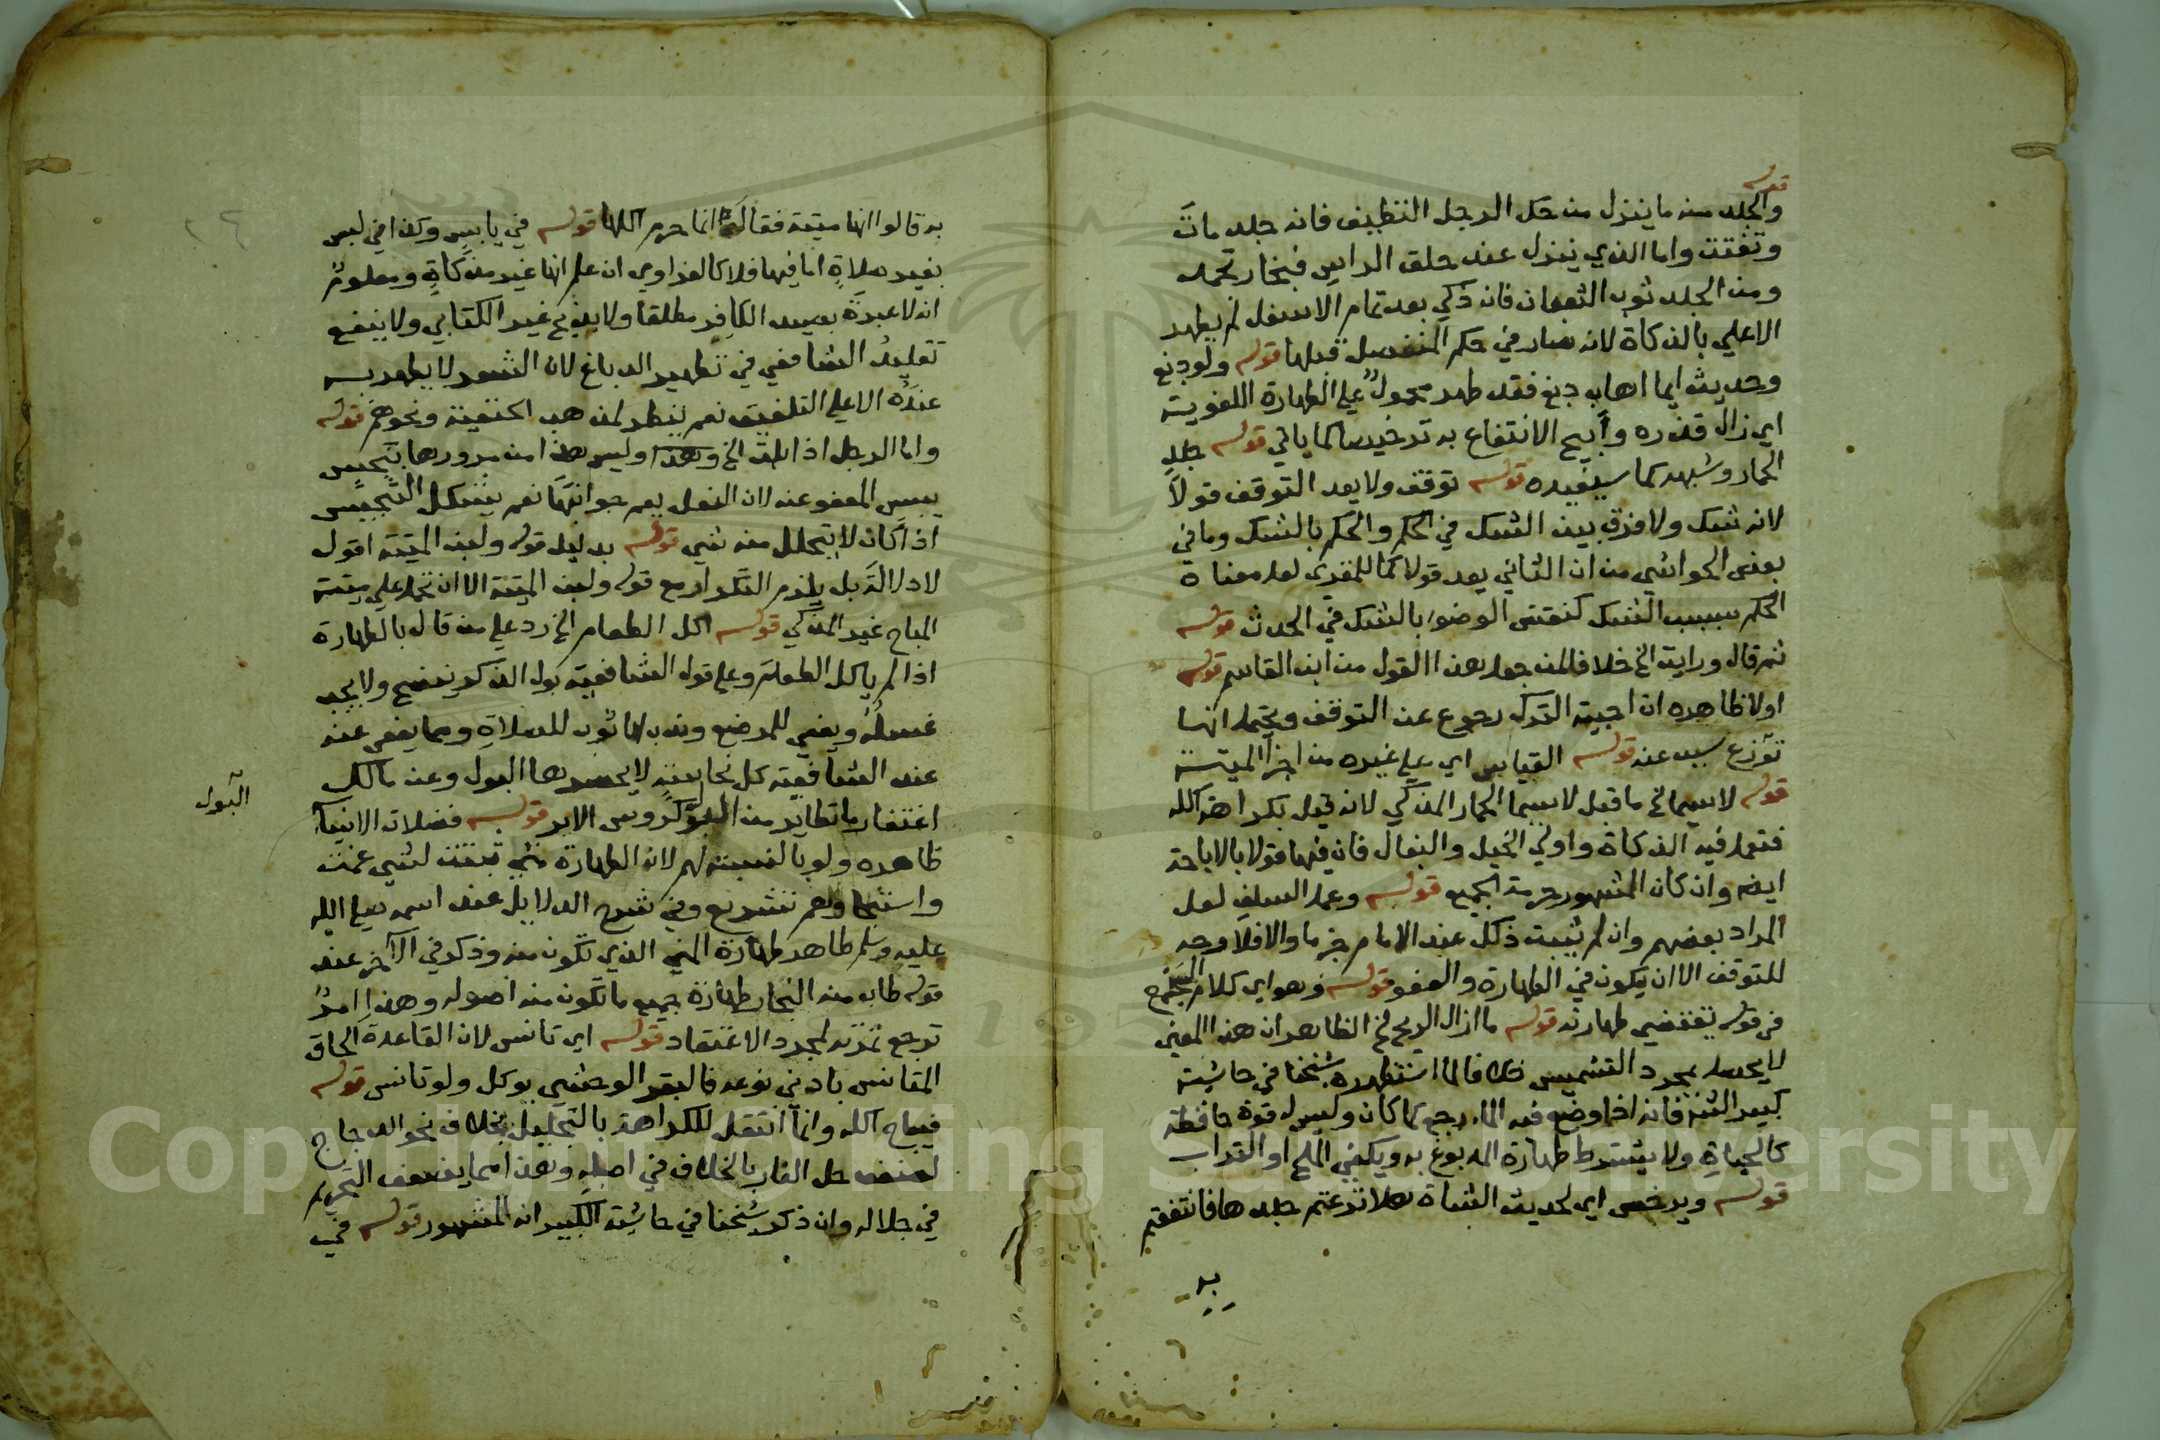 قوله
والجلد منه ما ينزل من حك الرجل النظيف فانه جلد مات
وتفتت واما الذي ينزل عند حلق الراس فبخار تجمد
ومن الجلد ثوب الثعبان فان ذكي بعد تمام الاسفل لم يطهر
الاعلي بالذكاة لانه صار في حكم المنفصل قبلها قوله ولو دبغ
وحديث ايما اهاب دبغ فقد طهر محمول علي الطهارة اللغوية
اي زال قذره وأبيح الانتفاع به ترخيصا كما ياتي قوله جلد
الحمار وشبهه كما سيفيده قوله توقف ولا يعد التوقف قولا
لانه شك ولا فرق بين الشك في الحكم والحكم بالشك وما في
بعض الحواشي من ان الثاني يعد قولا كما للمقري لعل معناه
الحكم بسبب الشك كنقض الوضوء بالشك في الحدث قوله
ثم قال ورايت الخ خلافا لمن جعل هذا القول من ابن القاسم قوله
اولا ظاهره ان اجبية الترك رجوع عن التوقف ويحتمل انها
تورع سبب عنه قوله القياس اي علي غيره من اجزا الميتة
قوله لا سيما الخ ما قبل لا سيما الحمار المذكي لانه قيل بكراهة اكله
فتعمل فيه الذكاة واولي الخيل والبغال فان فيها قولا بالاباحة
ايضا وان كان المشهور حرمة الجميع قوله وعمل السلف لعل
المراد بعضهم وان لم يثبت ذلك عند الامام جزما والافلا وجه
للتوقف الا ان يكون في الطهارة والعفو قوله وهو اي كلام الشرح
في قوله تقتضي طهارته قوله ما ازال الريح الخ الظاهر ان هذا المعني
لا يحصل بمجرد التشميس خلافا لما استظهره شيخنا في حاشية
كبير التتا فانه اذا وضع فيه الماء رجع كما كان وليس له قوة حافظة
كالحياة ولا يشترط طهارة المدبوغ به ويكفي الملح او التراب
قوله ويرخص اي لحديث الشاة هلا نزعتم جلدها فانتفعتم
به
به قالوا انها ميتة فقال انما حرم اكلها قوله في يابس وكذا في لبس
بغير صلاة اما فيها فلا كالفراوي ان علم انها غير مذكاة ومعلوم
انه لا عبرة بصيد الكافر مطلقا ولا بذبح غير الكتابي ولا ينفع
تقليد الشافعي في تطهير الدباغ لان الشعر لا يطهر به
عنده الا علي التلفيق نعم ينظر لمذهب الحنفية ونحوهم قوله
واما الرجل اذا بلت الخ وهذا وليس هذا من مرورها بنجس
يبس المعفو عنه لان النعل يعم جوانبها نعم يشكل التنجيس
اذا كان لا يتحلل منه شي قوله بدليل قوله ولبن الميتة اقول
لا دلالة بل يلزم التكرار مع قوله ولبن الميتة الا ان تحمل علي ميتة
المباح غير المذكي قوله اكل الطعام الخ رد علي من قال بالطهارة
اذا لم ياكل الطعام وعلي قول الشافعية بول الذكر ينضح ولا يجب
غسله ويعفي للمرضع وندب لها ثوب للصلاة ومما يعفي عنه
عند الشافعية كل نجاسة لا يحضرها البول وعن مالك
اغتفار ما تطاير من البول كروس الابر قوله فضلات الانبياء
ظاهره ولو بالنسبة لهم لان الطهارة متي ثبتت لشي عمت
واستنجاوهم تشريع وفي شرح الدلايل عند اسمه صلي الله
عليه وسلم طاهر طهارة المني الذي تكون منه وذكر في الآخر عند
قوله طاب منه النجار طهارة جميع ما تكون منه اصوله وهذا امر
ترجع ثمرته لمجرد الاعتقاد قوله اي تانس لان القاعدة الحاق
المتانس بادني نوعه فالبقر الوحشي يوكل ولو تانس قوله
فيباح اكله وانما انتقل للكراهة بالتحليل بخلاف نحو الدجاج
لضعف حل الفار بالخلاف في اصله وهذا مما يضعف التحريم
في جلاله وان ذكر شيخنا في حاشية الكبير انه المشهور قوله في
البول